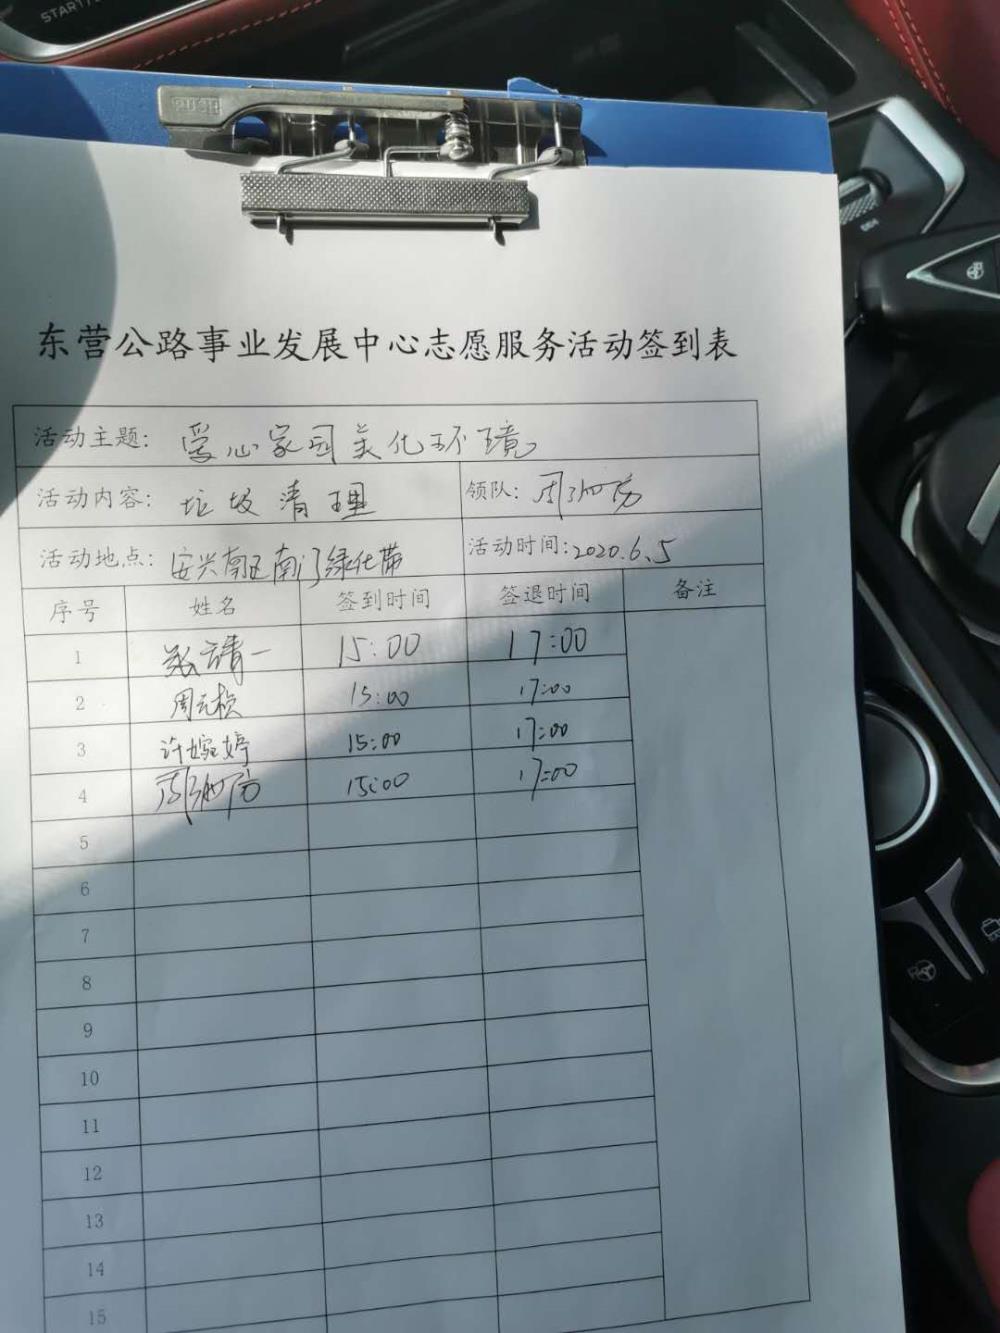 START
PUSH
东营公路事业发展中心志愿服务活动签到表
活动主题: 爱心家园美化环境
活动内容: 垃圾清理 领队: 周
活动地点: 安兴南区南门绿化带 活动时间: 2020.6.5
序号 姓名 签到时间 签退时间 备注
1 清一 15:00 17:00
2 周元桢 15:00 17:00
3 许婉婷 15:00 17:00
4 周 15:00 17:00
5
6
7
8
9
10
11
12
13
14
15